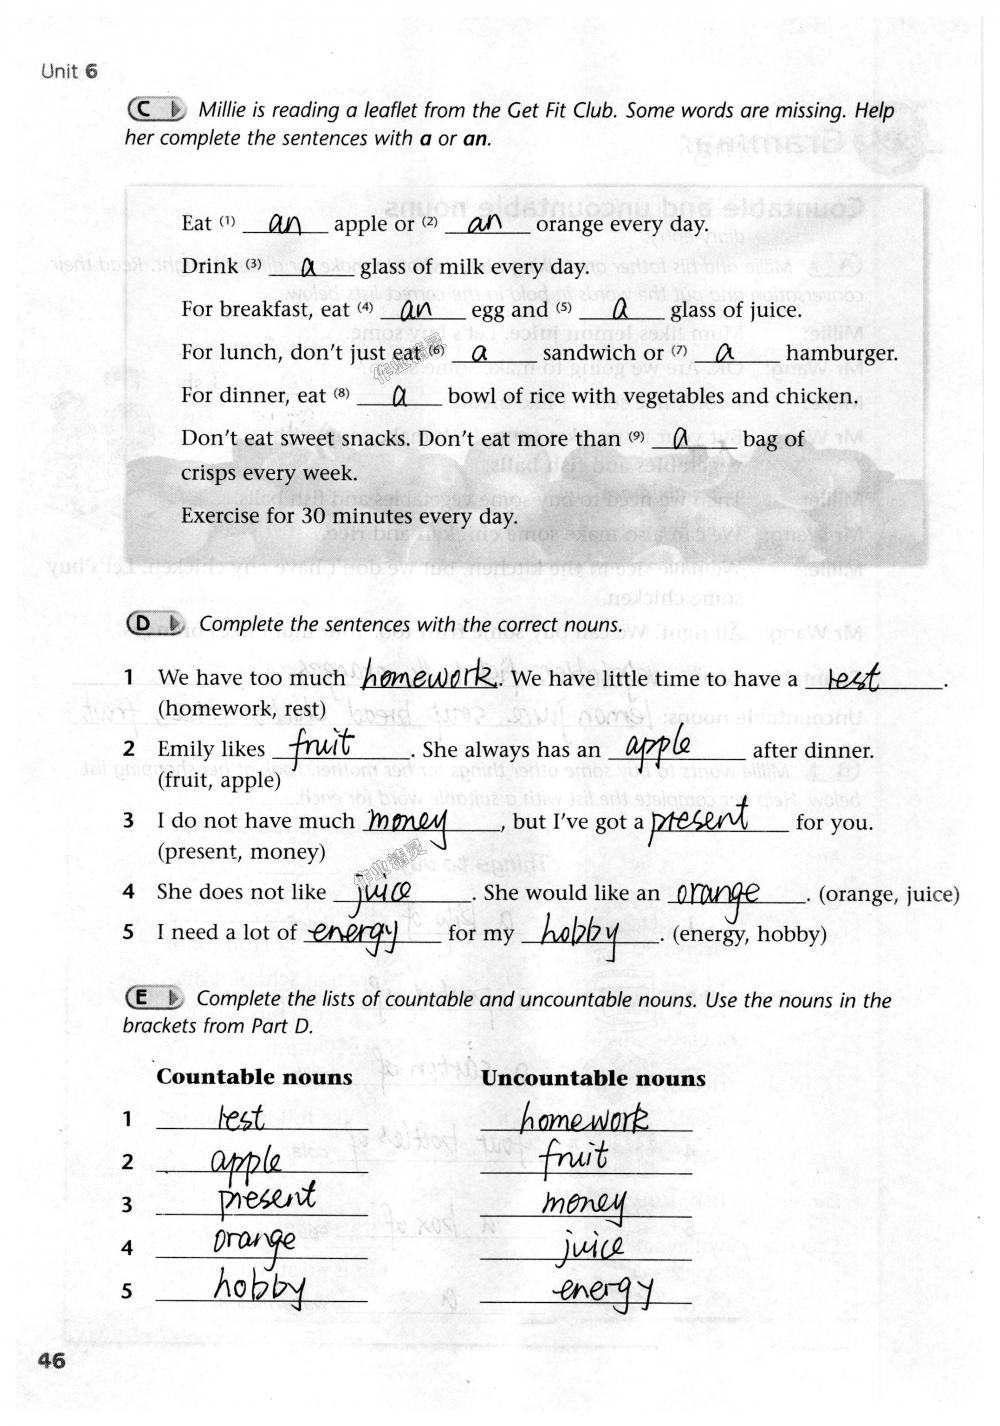 Unit 6
C Millie is reading a leaflet from the Get Fit Club. Some words are missing. Help
her complete the sentences with a or an.
Eat (1) an apple or (2) an orange every day.
Drink (3) a glass of milk every day.
For breakfast, eat (4) an egg and (5) a glass of juice.
For lunch, don't just eat (6) a sandwich or (7) a hamburger.
作业精灵
For dinner, eat (8) a bowl of rice with vegetables and chicken.
Don't eat sweet snacks. Don't eat more than (9) a bag of
crisps every week.
Exercise for 30 minutes every day.
D Complete the sentences with the correct nouns.
1 We have too much homework. We have little time to have a rest.
(homework, rest)
2 Emily likes fruit. She always has an apple after dinner.
(fruit, apple)
3 I do not have much money, but I've got a present for you.
(present, money)
作业精灵
4 She does not like juice. She would like an orange. (orange, juice)
5 I need a lot of energy for my hobby. (energy, hobby)
E Complete the lists of countable and uncountable nouns. Use the nouns in the
brackets from Part D.
Countable nouns Uncountable nouns
1 rest homework
2 apple fruit
3 present money
4 orange juice
5 hobby energy
46